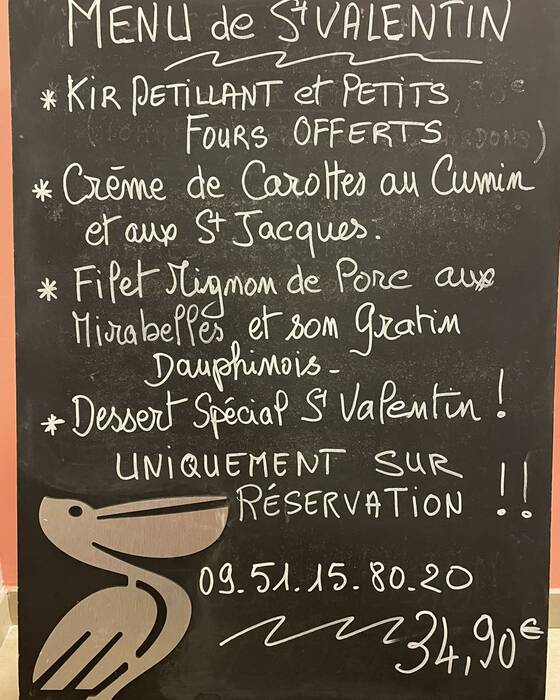 MENU de St VALENTIN
* KIR PETILLANT et PETITS
FOURS OFFERTS
* Crème de Carottes au Cumin
et aux St Jacques.
* Filet Mignon de Porc aux
Mirabelles et son Gratin
Dauphinois-
* Dessert Spécial St Valentin !
UNIQUEMENT SUR
RÉSERVATION !!
09.51.15.80.20
34,90€